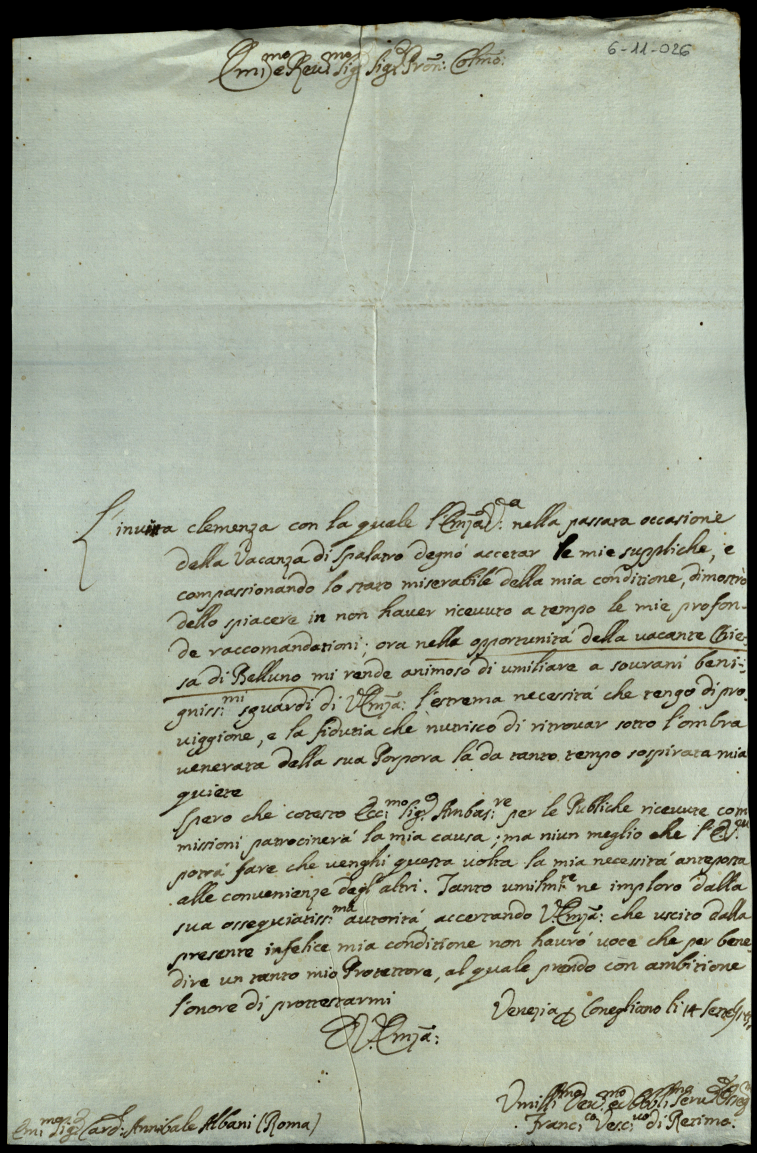 6-11-026
Emi:mo e Reu:mo Sig:r Sig:r Pron: Colmo:
L'inuita clemenza con la quale l'Emza: V:a nella passata occasione
della Vacanza di Spalatro degnò accetar le mie suppliche, e
compassionando lo stato miserabile della mia conditione, dimostrò
dello spiacere in non hauer riceuuto a tempo le mie profon-
de raccomandationi; ora nella opportunità della vacante Chie-
sa di Belluno mi rende animoso di umiliare a sourani beni-
gniss:mi sguardi di V: Emza: l'estrema necessità che tengo di pro-
uiggione, e la fiducia che nutrisco di ritrouar sotto l'ombra
venerata della sua Porpora la da tanto tempo sospirata mia
quiete
Spero che cotesto Ecc:mo Sig:r Ambas:re per le Publiche riceuute com
missioni patrocinerà la mia causa; ma niun meglio che l'E: V:
potrà fare che venghi questa uolta la mia necessità anteposta
alle conuenienze degl'altri. Tanto umilm:te ne imploro dalla
sua ossequiatiss:ma autorità, accertando V: Emza: che uscito dalla
presente infelice mia conditione non haurò uoce che per bene-
dire un tanto mio Protettore, al quale prendo con ambitione
l'onore di prottestarmi
Venezia Conegliano li 14 Sett
D V: Emza:
Umiliss:mo Deu:mo ed Obbl:mo Seru:
Franc:co Vesc:uo di Retimo.
Emi:mo Sig:r Card: Annibale Albani (Roma)